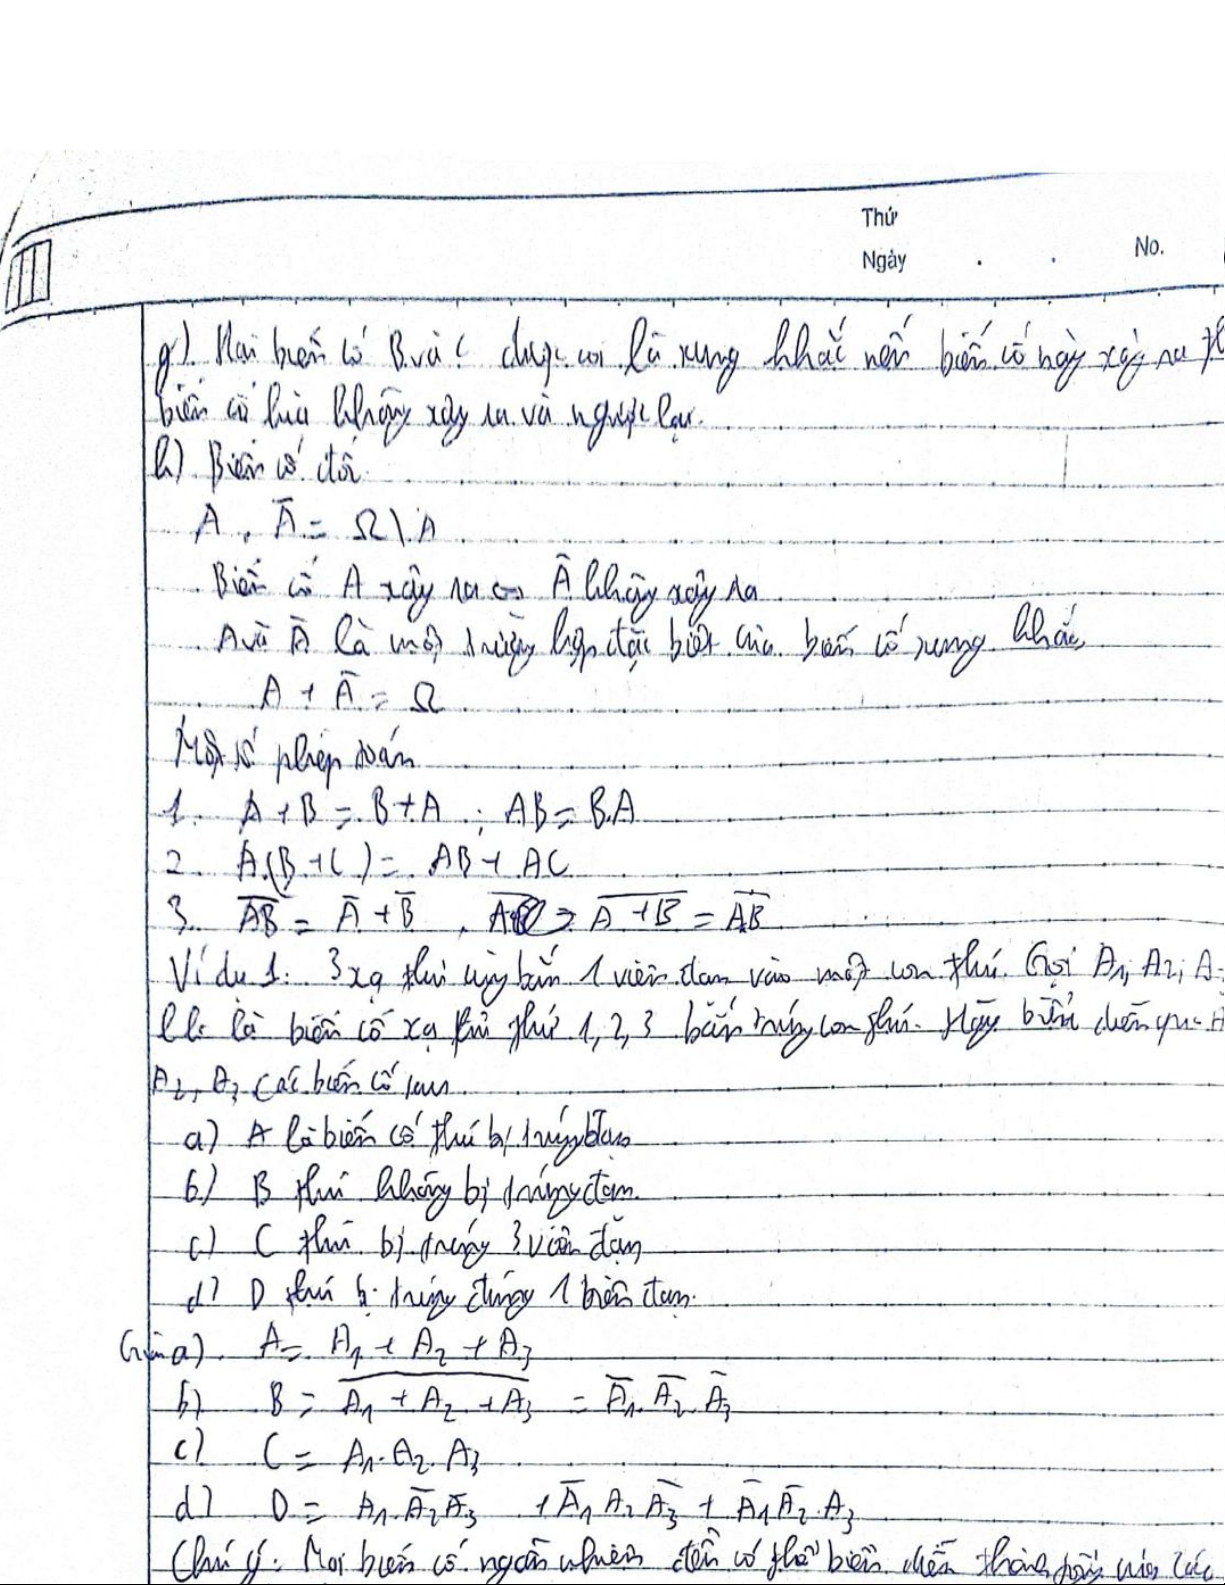 Thứ
Ngày
No.
g) Hai biến cố B và C được coi là xung khắc nếu biến cố này xảy ra th
biến cố kia không xảy ra và ngược lại.
h) Biến cố đối
A, Ā = Ω \ A
Biến cố A xảy ra ⇔ Ā không xảy ra
A và Ā là một trường hợp đặc biệt của biến cố xung khắc
A + Ā = Ω
Một số phép toán
1. A + B = B + A ; AB = B.A
2. A.(B + C) = AB + AC
3. \overline{AB} = Ā + B̄ , \overline{A+B} = \overline{AB}
Ví dụ 1: 3 xạ thủ cùng bắn 1 viên đạn vào một con thú. Gọi A₁, A₂, A
là biến cố xạ thủ thứ 1, 2, 3 bắn trúng con thú. Hãy biểu diễn qua A
A₂, A₃ các biến cố sau
a) A là biến cố thú bị trúng đạn
b) B thú không bị trúng đạn.
c) C thú bị trúng 3 viên đạn
d) D thú bị trúng đúng 1 viên đạn.
Giải a) A = A₁ + A₂ + A₃
b) B = \overline{A₁ + A₂ + A₃} = Ā₁.Ā₂.Ā₃
c) C = A₁.A₂.A₃
d) D = A₁.Ā₂Ā₃ + Ā₁A₂Ā₃ + Ā₁Ā₂.A₃
Chú ý: Mọi biến cố ngẫu nhiên đều có thể biểu diễn thành tổng của các